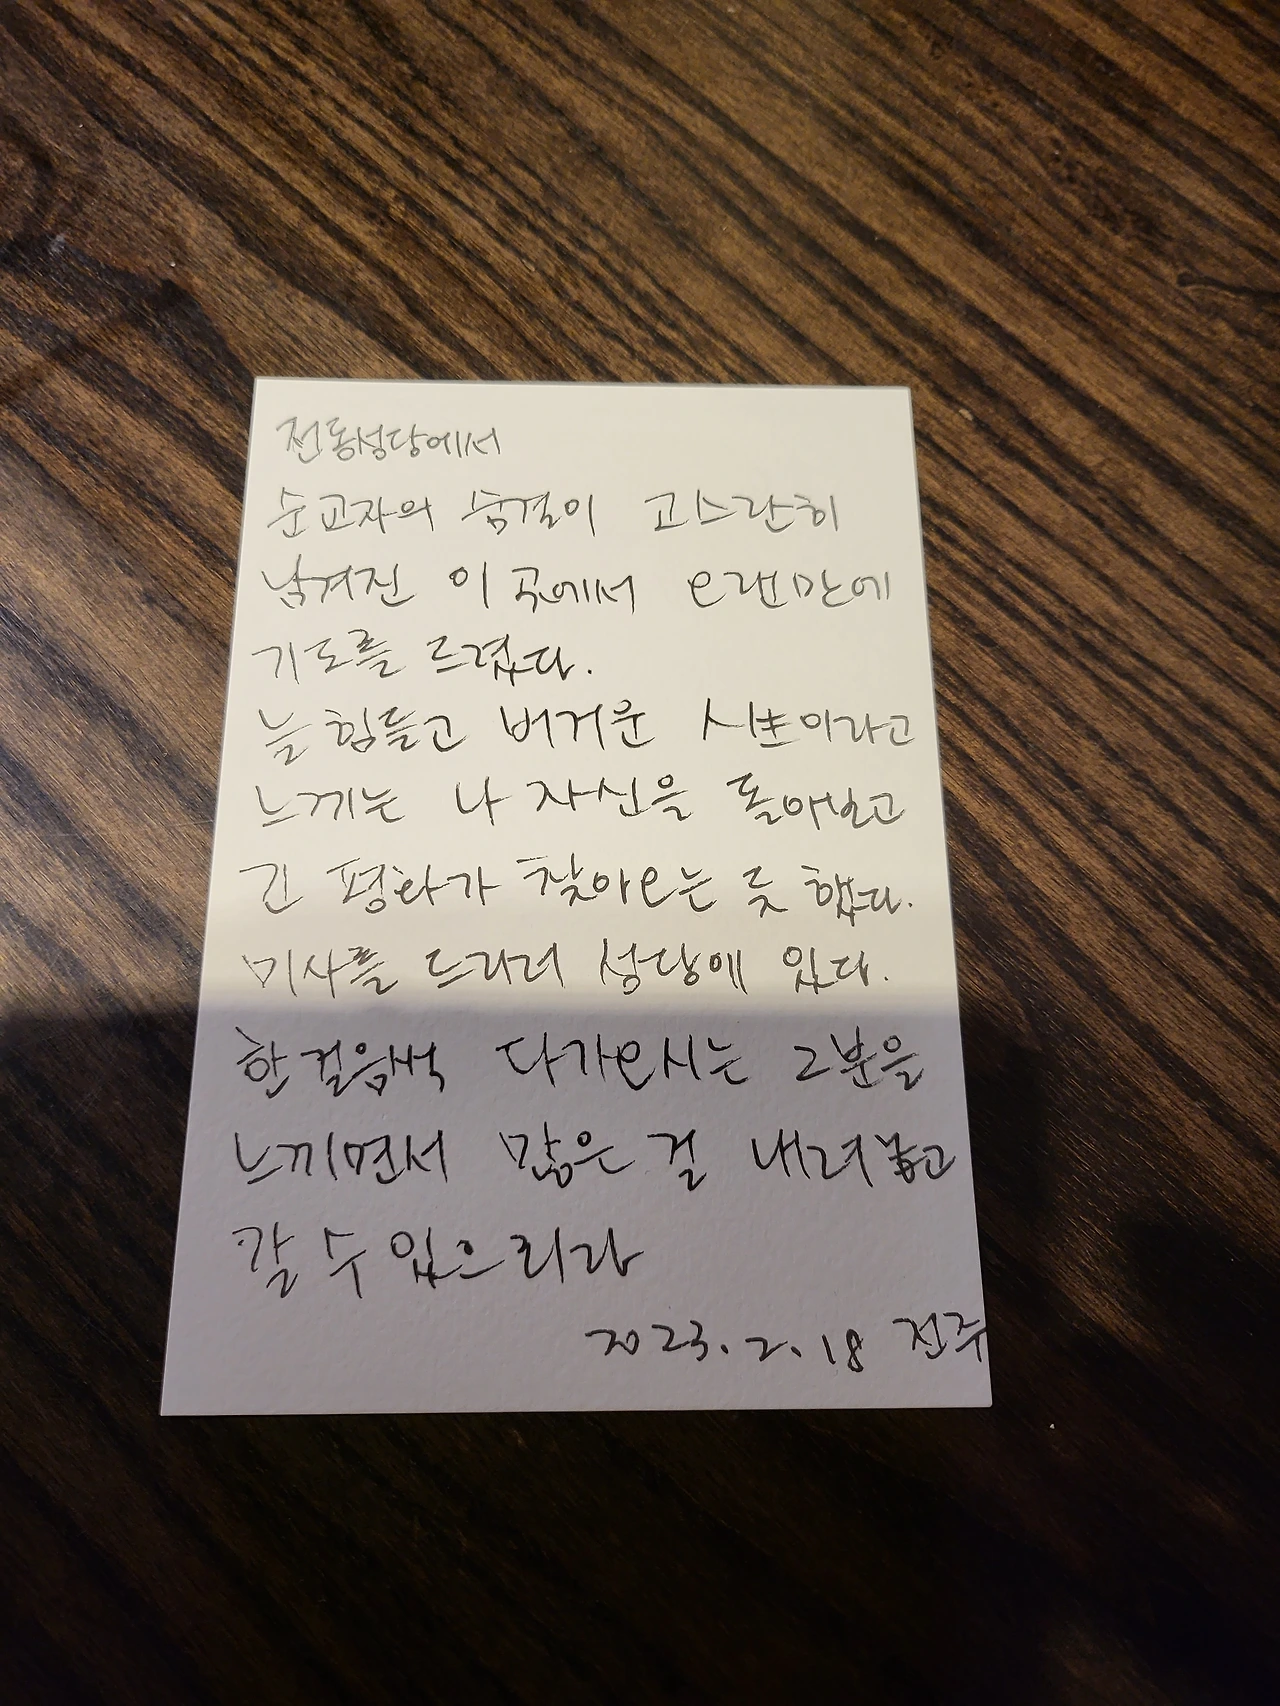 전동성당에서
순교자의 숨결이 고스란히
남겨진 이 곳에서 오랜만에
기도를 드렸다.
늘 힘들고 버거운 시간이라고
느끼는 나 자신을 돌아보고
긴 평화가 찾아오는 듯 했다.
미사를 드리러 성당에 있다.
한걸음씩 다가오시는 그분을
느끼면서 많은 걸 내려놓고
갈 수 있으리라
2023.2.18 전주